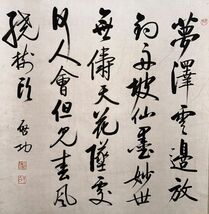 夢澤雲邊放
釣舟坡仙墨妙世
無儔天花墜處
何人會但見春風
繞樹頭 啓功